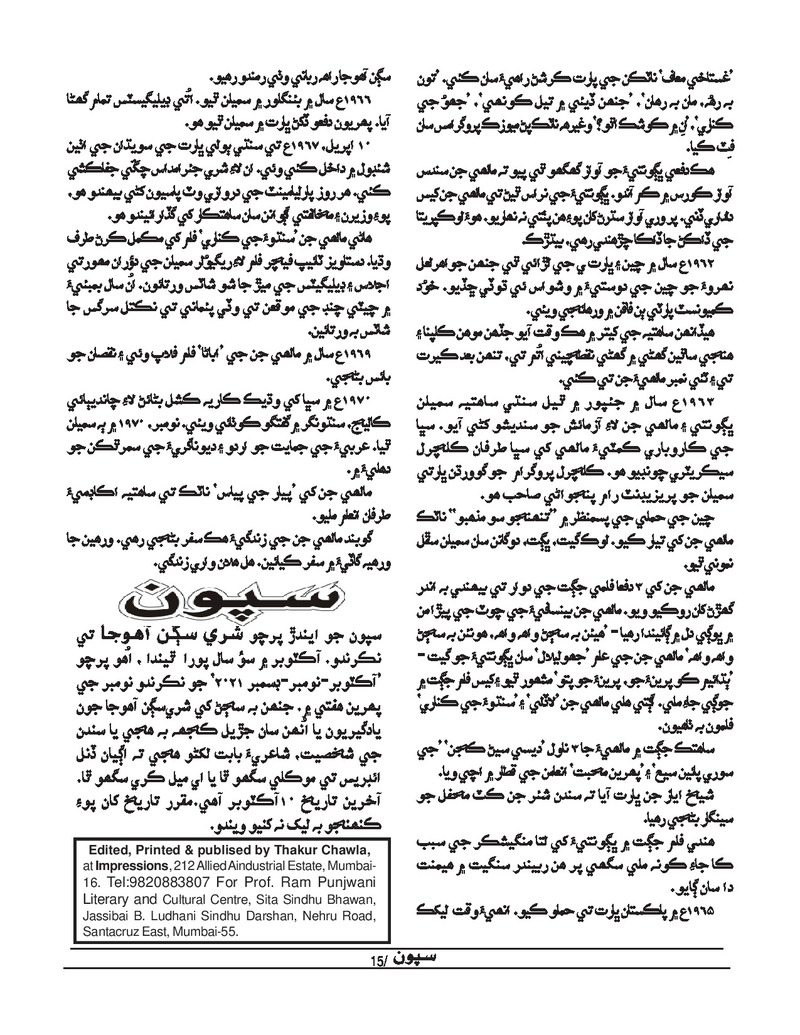 ’غستاخي معاف‘ ناٽڪن جي ڀارت ڪرشڻ راهيءَ سان ڪئي. ’تون
به رھ، مان به رهان‘، ’جنهن ڏيئي ۾ تيل ڪونهي‘، ’جهوُڙ جي
ڪناري‘، اُن ۾ ڪو شڪ اٿو؟‘ وغيره ناٽڪن ميوزڪ پروگرامس سان
فِٽ ڪيا.
هڪ دفعي ڀڳونتيءَ جو آواز گهگهو ٿي پيو ته ماٿي جن سندس
آواز ڪورس ۾ ڪم آندو. ڀڳونتيءَ جي نراس ٿيڻ تي ماٿي جن کيس
جي ڏاڪڻ جا ڏاڪا چڙهندي رهي، بيٽڙڪ.
۱۹٦۲ع سال ۾ چين ۽ ڀارت جي لڙائي ٿي جنهن جواهر لعل
نهروءَ جو چين جي دوستيءَ ۾ وشواس ئي ٽوڙي ڇڏيو. خود
ڪميونسٽ پارٽي ٻن ڦاڪن ۾ ورهائجي ويئي.
هيڏانهن ساهتيه جي کيتر ۾ هڪ وقت آيو جڏهن موهن ڪلپنا ۽
هنجي ساٿين گهڻي ۾ گهڻي نقطچيني اُتم تي، تنهن بعد ڪيرت
تي ۽ ٽئي نمبر ماٿيءَ جن تي ڪئي.
۱۹٦۳ع سال ۾ جئپور ۾ ٿيل سنڌي ساهتيه سميلن
ڀڳونتي ۽ ماٿي جن لاءِ آزمائش جو سنديشو کڻي آيو. سڀا
جي ڪاروباري ڪميٽيءَ ماٿي کي سڀا طرفان ڪلچرل
سيڪريٽري چونڊيو هو. ڪلچرل پروگرام جو گوورڌن ڀارتي
سميلن جو پريزيڊنٽ رام پنجواڻي صاحب هو.
چين جي حملي جي پسمنظر ۾ ”تنهنجو سو منهنجو“ ناٽڪ
ماٿي جن کي تيار ڪيو. لوڪ گيت، ڀڳت، دوگانن سان سميلن سڦل
نموني ٿيو.
ماٿي جن کي ۳ دفعا فلمي جڳت جي دوار تي بيهندي به اندر
گهڙڻ کان روڪيو ويو. ماٿي جن بينسافيءَ جي چوٽ جي پيڙا من
۾ ڀوڳي دل ۾ ڳائيندا رهيا – ’هيئن به سڄڻ واھ واھ، هونئن به سڄڻ
واھ واھ‘ ماٿي جن جي علم ’جهوليلال‘ سان ڀڳونتيءَ جو گيت –
’ٻڌائيم ڪو پرينءَ جو، پرينءَ جو پتو‘ مشهور ٿيو ۽ کيس فلم جڳت ۾
جوڳي جاءِ ملي. ڳڻتي هلي ماٿي جن ’لاڏلي‘ ۽ ’سنڌوءَ جي ڪناري‘
فلمون به ٺاهيون.
ساهتڪ جڳت ۾ ماٿيءَ جا ۳ ناول ’ديسي سيڻ ڪجن‘ ’جي
سوري پائين سيج‘ ۽ ’پهرين محبت‘ انعامن جي قطار ۾ اچي ويا.
شيخ اياز جن ڀارت آيا ته سندن شئر جن ڪٽ محفل جو
سينگار بڻجي رهيا.
هندي فلم جڳت ۾ ڀڳونتيءَ کي لتا منگيشڪر جي سبب
ڪا جاءِ ڪونه ملي سگهي پر هن رپيندر سنگيت ۾ هيمنت
دا سان ڳايو.
۱۹٦۵ع ۾ پاڪستان ڀارت تي حملو ڪيو. انهيءَ وقت ليکڪ
سڳن آهوجا راھ رباني وئي رمندو رهيو.
۱۹٦٦ع سال ۾ بئنگلور ۾ سميلن ٿيو. اُتي ڊيليگيٽس تمام گهڻا
آيا. پهريون دفعو ڏکڻ ڀارت ۾ سميلن ٿيو هو.
۱۰ اپريل، ۱۹٦۷ع تي سنڌي ٻولي ڀارت جي سويڌان جي اٺين
شئڊيول ۾ داخل ڪئي وئي. ان لاءِ شري جئرامداس چڱي جفاڪشي
ڪئي. هر روز پارليامينٽ جي دروازي وٽ پاسيون کڻي بيهندو هو،
پوءِ وزيرن ۽ مخالفتي گهڻائن سان ساهتڪار کي گڏ ڪرائيندو هو.
هاڻي ماٿي جن ’سنڌوءَ جي ڪناري‘ فلم کي مڪمل ڪرڻ طرف
وڌيا. دستاويز ٽائيپ فيچر فلم لاءِ ريگيولر سميلن جي دؤران مهورتي
اجلاس ۽ ڊيليگيٽس جي ميڙ جا شو شاٽس ورتائون. اُن سال بمبئيءَ
۾ چيٽي چنڊ جي موقعن تي وڏي پئماني تي نڪتل سرگس جا
شاٽس به ورتائين.
۱۹٦۹ع سال ۾ ماٿي جن جي ’اباڻا‘ فلم فلاپ وئي ۽ نقصان جو
باعث بڻجي.
۱۹۷۰ع ۾ سڀا کي وڌيڪ ڪاريه ڪشل بڻائڻ لاءِ چانديٻائي
ڪاليج، سنڌونگر ۾ گفتگو ڪوٺائي ويئي. نومبر، ۱۹۷۰ ۾ به سميلن
ٿيا. عربيءَ جي حمايت جو اردو ۽ ديوناگريءَ جي سمرٿڪن جو
دهليءَ ۾.
ماٿي جن کي ’پيار جي پياس‘ ناٽڪ تي ساهتيه اڪاڊميءَ
طرفان انعام مليو.
گوبند ماٿي جن جي زندگيءَ هڪ سفر بڻجي رهي. ورهين جا
ورهيه گاڏيءَ ۾ سفر ڪيائين. هل هلان واري زندگي.
سپون
سپون جو ايندڙ پرچو شري سڳن آهوجا تي
نڪرندو. آڪٽوبر ۾ سؤ سال پورا ٿيندا . اُهو پرچو
’آڪٽوبر-نومبر-ڊسمبر ۲۰۲۱‘ جو نڪرندو نومبر جي
پهرين هفتي ۾. جنهن به سڄڻ کي شري سڳن آهوجا جون
يادگيريون يا اُنهن سان جڙيل ڪجهه به هجي يا سندن
جي شخصيت، شاعريءَ بابت لکڻو هجي ته اڳيان ڏنل
ائڊريس تي موڪلي سگهو ٿا يا اي ميل ڪري سگهو ٿا.
آخرين تاريخ ۱۰ آڪٽوبر آهي. مقرر تاريخ کان پوءِ
ڪنهنجو به ليک نه کنيو ويندو.
Edited, Printed & publised by Thakur Chawla,
at Impressions, 212 Allied Aindustrial Estate, Mumbai-
16. Tel:9820883807 For Prof. Ram Punjwani
Literary and Cultural Centre, Sita Sindhu Bhawan,
Jassibai B. Ludhani Sindhu Darshan, Nehru Road,
Santacruz East, Mumbai-55.
15/ سپون